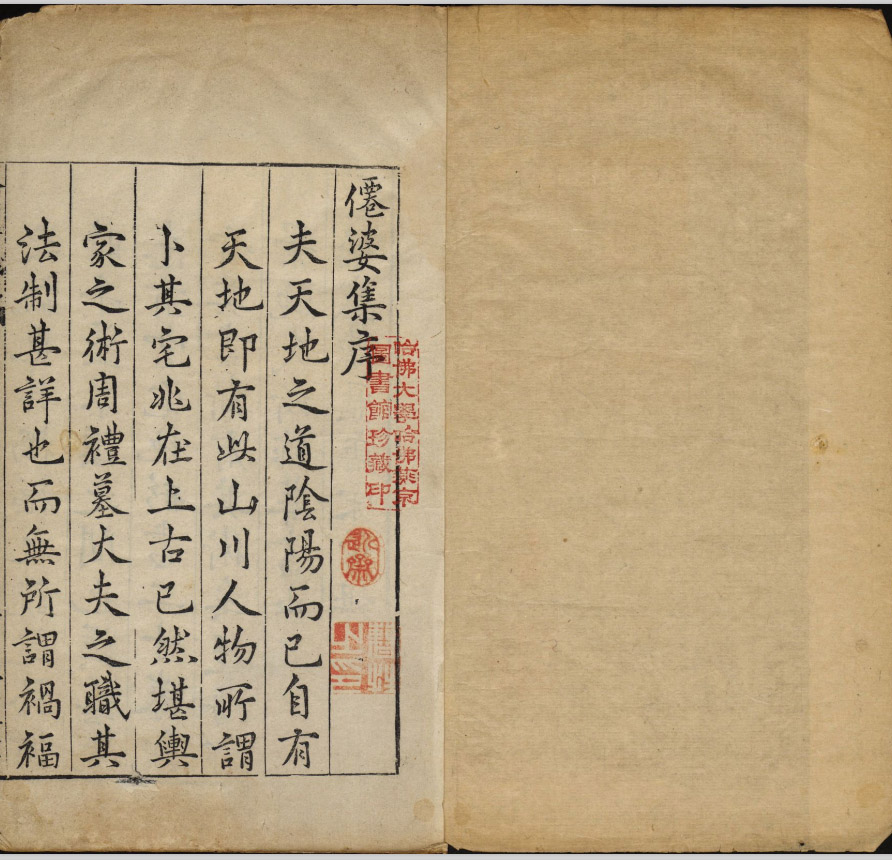 僊婆集序
夫天地之道陰陽而已自有
天地即有此山川人物所謂
卜其宅兆在上古已然堪輿
家之術周禮墓大夫之職其
法制甚詳也而無所謂禍福
哈佛大學哈佛燕京
圖書館珍藏印